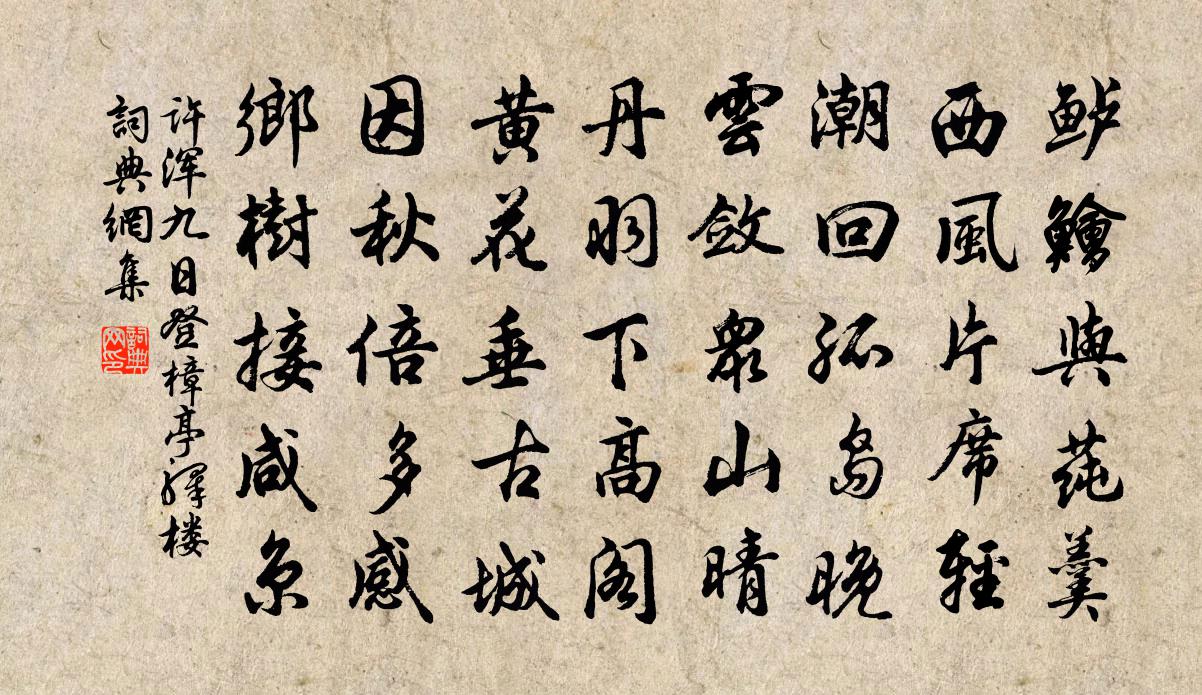 鲈鱠與莼羹
西風片席輕
潮回孤島晚
雲斂眾山晴
丹羽下高閣
黃花垂古城
因秋倍多感
鄉樹接咸京
许浑九日登樟亭驛楼
詞典網集
詞典网印